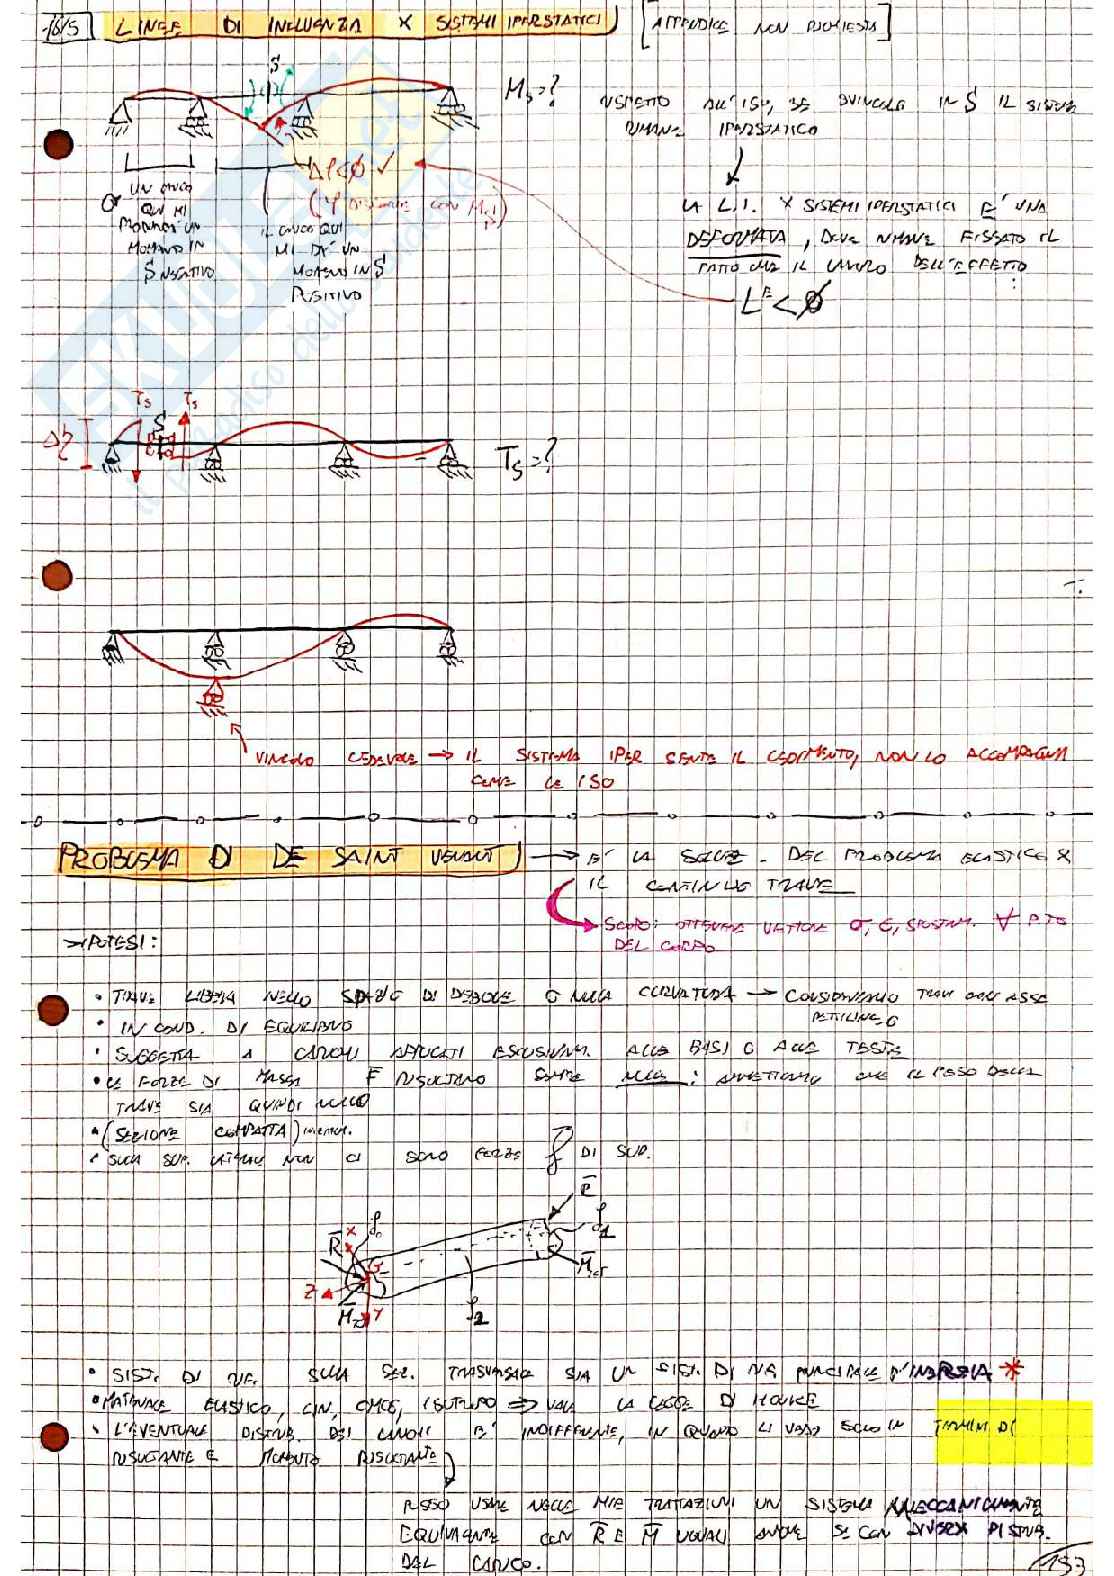 16/5 LINEE DI INFLUENZA X SISTEMI IPERSTATICI [APPENDICE NON RICHIESTA]
S
Ms=? RISPETTO ALL'ISO, SE SVINCOLO IN S IL SISTEMA
RIMANE IPERSTATICO
Δφ<0 ✓
(φ DISCORDE CON Ms)
UN CARICO
QUI MI
MOMENTO IN
S NEGATIVO
IL CARICO QUI
MI DA' UN
MOMENTO IN S
POSITIVO
LA L.I. X SISTEMI IPERSTATICI E' UNA
DEFORMATA, DEVE RIMANERE FISSATO IL
FATTO CHE IL LAVORO DELL'EFFETTO
L < 0
Ts Ts
S
Δη
Ts=?
VINCOLO CEDEVOLE → IL SISTEMA IPER SENTE IL CEDIMENTO, NON LO ACCOMPAGNA
COME LE ISO
PROBLEMA DI DE SAINT VENANT → E' LA SOLUZ. DEL PROBLEMA ELASTICO X
IL CONTINUO TRAVE
SCOPO: OTTENERE VETTORE σ, ε, SPOSTAM. ∀ P.TO
DEL CORPO
IPOTESI:
• TRAVE LIBERA NELLO SPAZIO DI DEBOLE O NULLA CURVATURA → CONSIDERIAMO TRAVI AD ASSE
RETTILINEO
• IN COND. DI EQUILIBRIO
• SOGGETTA A CARICHI APPLICATI ESCLUSIVAM. ALLE BASI O ALLE TESTE
• LE FORZE DI MASSA F RISULTANO SEMPRE NULLE: AMMETTIAMO CHE IL PESO DELLA
TRAVE SIA QUINDI NULLO
• (SEZIONE COMPATTA)
• SULLA SUP. LATERALE NON CI SONO FORZE f DI SUP.
R
R
f₀
f₁
G
M
X
Z
M
Y
f₂
• SIST. DI RIF. SULLA SEZ. TRASVERSALE SIA UN SIST. DI RIF. PRINCIPALE D'INERZIA *
• MATERIALE ELASTICO, LIN, OMOG, ISOTROPO ⇒ VALE LA LEGGE DI HOOKE
• L'EVENTUALE DISTRIB. DEI CARICHI E' INDIFFERENTE, IN QUANTO LI VEDO SOLO IN TERMINI DI
RISULTANTE E MOMENTO RISULTANTE
POSSO USARE NELLE MIE TRATTAZIONI UN SISTEMA MECCANICAMENTE
EQUIVALENTE CON R E M UGUALI ANCHE SE CON DIVERSA DISTRIB.
DEL CARICO.
193